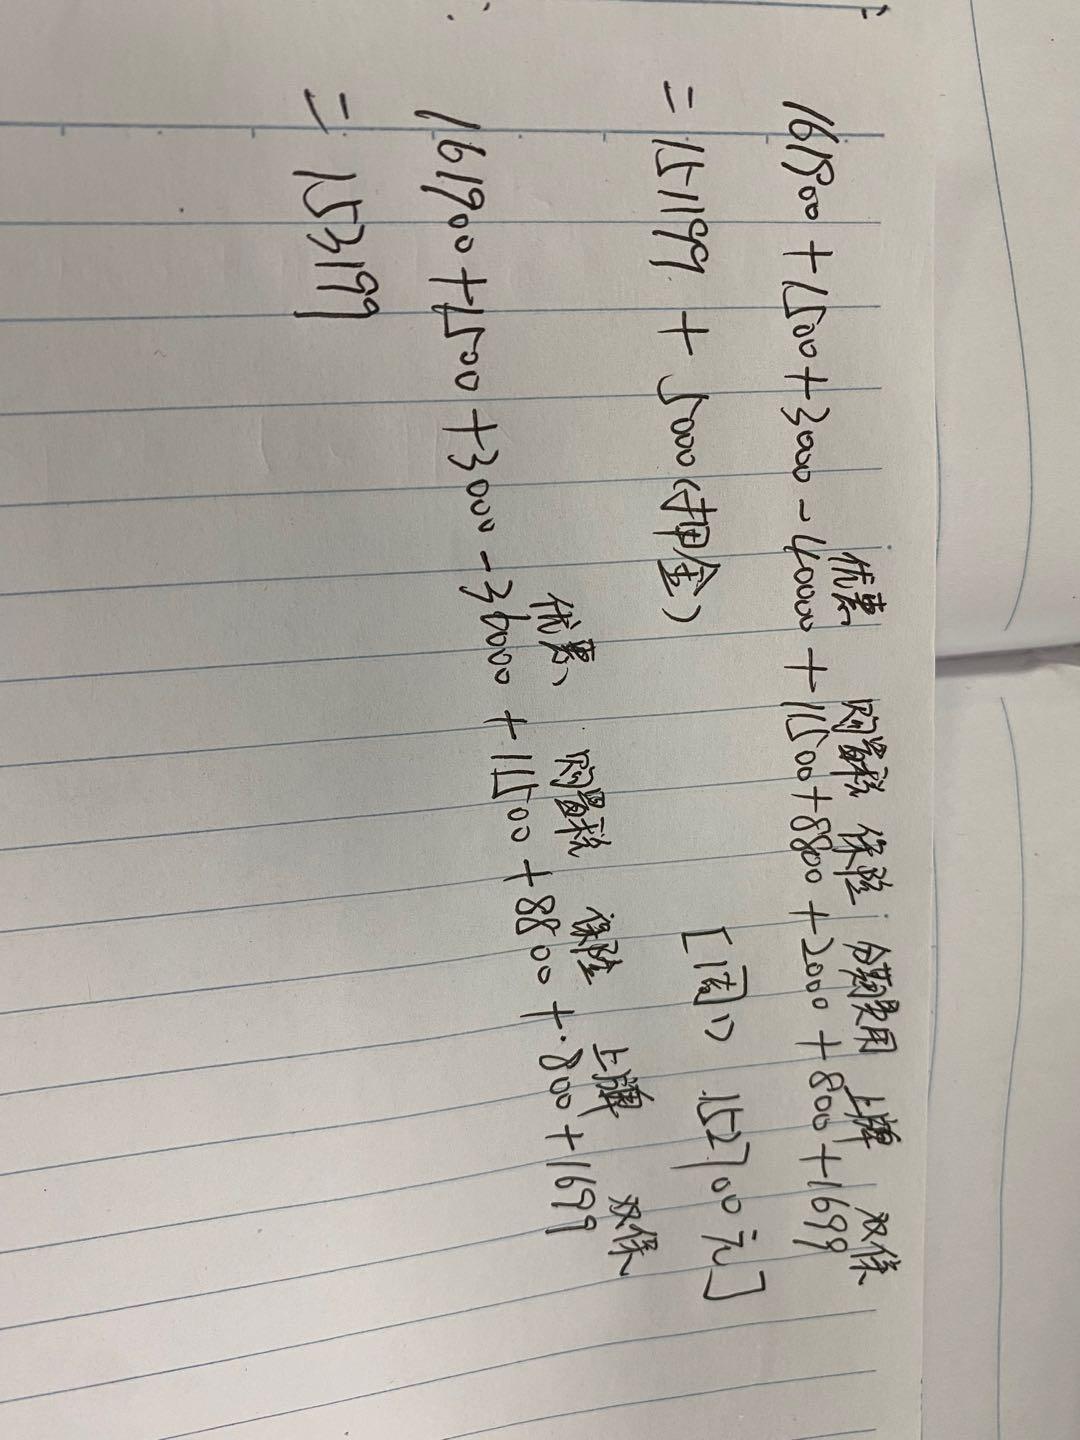 优惠 购置税 保险 分期费用 上牌 双保
161900+1500+3000-40000+11500+8800+2000+800+1699
=151199 + 5000(押金) [周) 152700元]
优惠 购置税 保险 上牌 双保
161900+1500+3000-36000+11500+8800+800+1699
= 153199